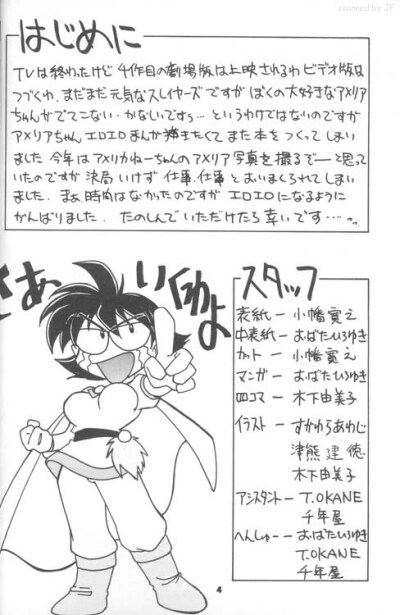 scanned by JF
はじめに
TVは終わったけど 4作目の劇場版は上映されるわ ビデオ版は
つづくわ、まだまだ元気なスレイヤーズですが ぼくの大好きなアメリア
ちゃんがでてこない・かなしいですぅ… というわけではないのですが
アメリアちゃん エロエロまんが描きたくて また本をつくってしまい
ました 今年はアメリカねーちゃんのアメリア写真を撮るでーと思って
いたのですが 決局いけず 仕事、仕事 とおいまくられてしまい
ました。まぁ、時間はなかったのですが エロエロになるように
がんばりました。たのしんでいただけたら幸いです…
さあ いくわよ
スタッフ
表紙ー小幡寛之
中表紙ーおばたひろゆき
カットー小幡寛之
マンガーおばたひろゆき
四コマー木下由美子
イラストーすがわらあわじ
津熊建徳
木下由美子
アシスタントーT.OKANE
千年屋
へんしゅーーおばたひろゆき
T.OKANE
千年屋
4